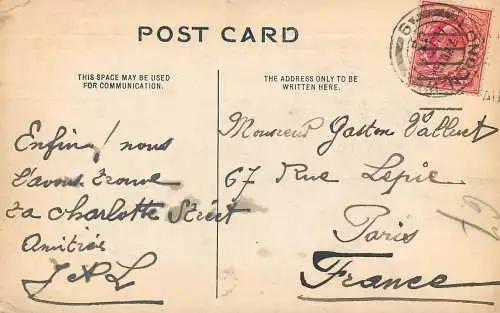 POST CARD
THIS SPACE MAY BE USED
FOR COMMUNICATION.
THE ADDRESS ONLY TO BE
WRITTEN HERE.
Enfin! nous
l'avons trouvé
ta Charlotte Street
Amitiés
Monsieur Gaston Valluet
67 Rue Lepic
Paris
France
LONDON